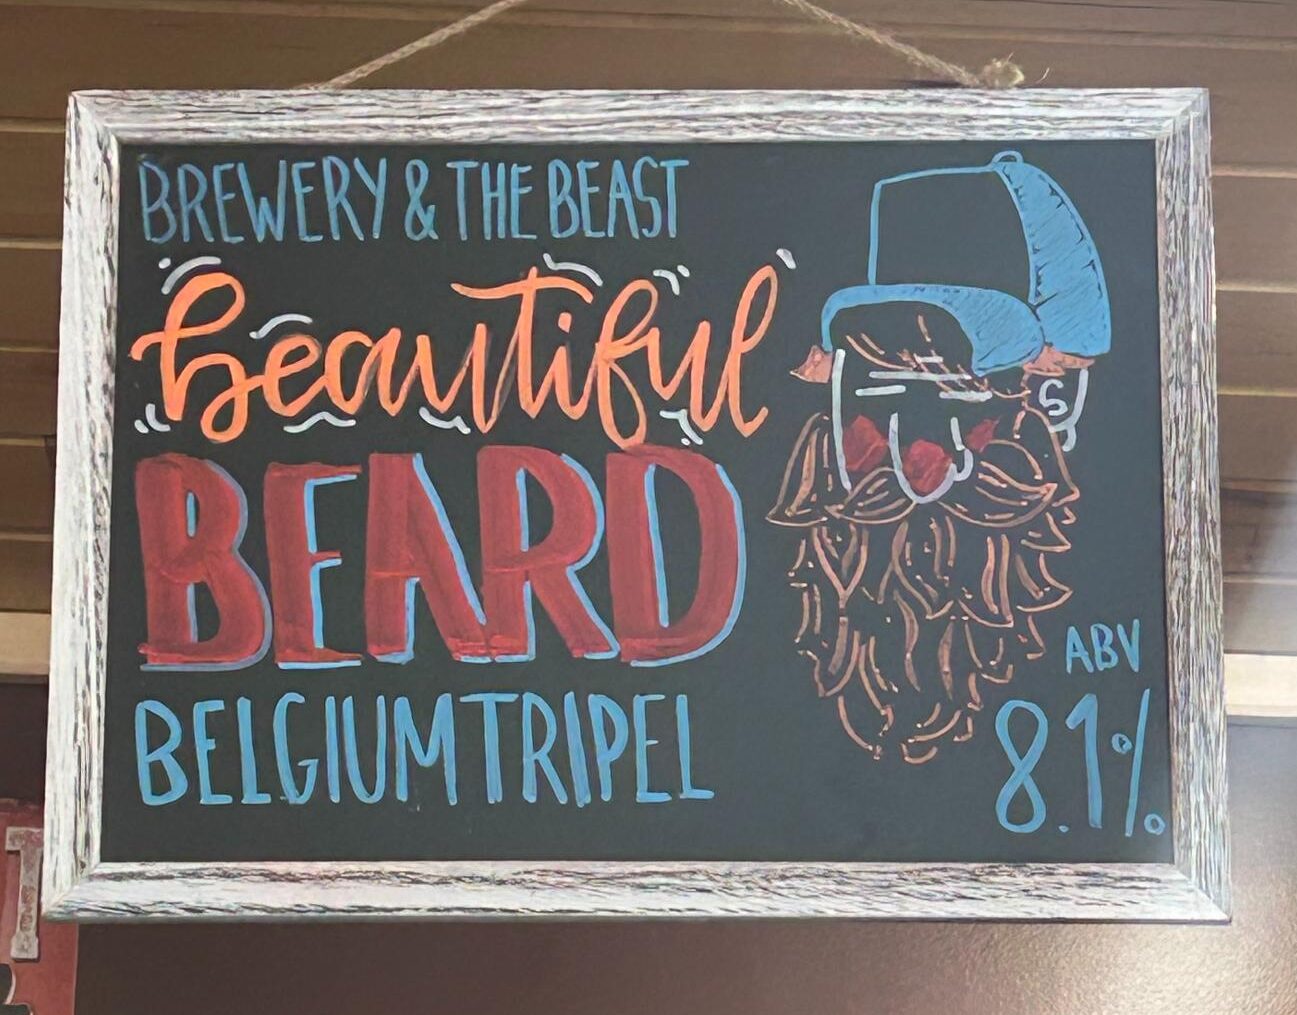 BREWERY & THE BEAST
beautiful
BEARD
BELGIUM TRIPEL
ABV
8.1%